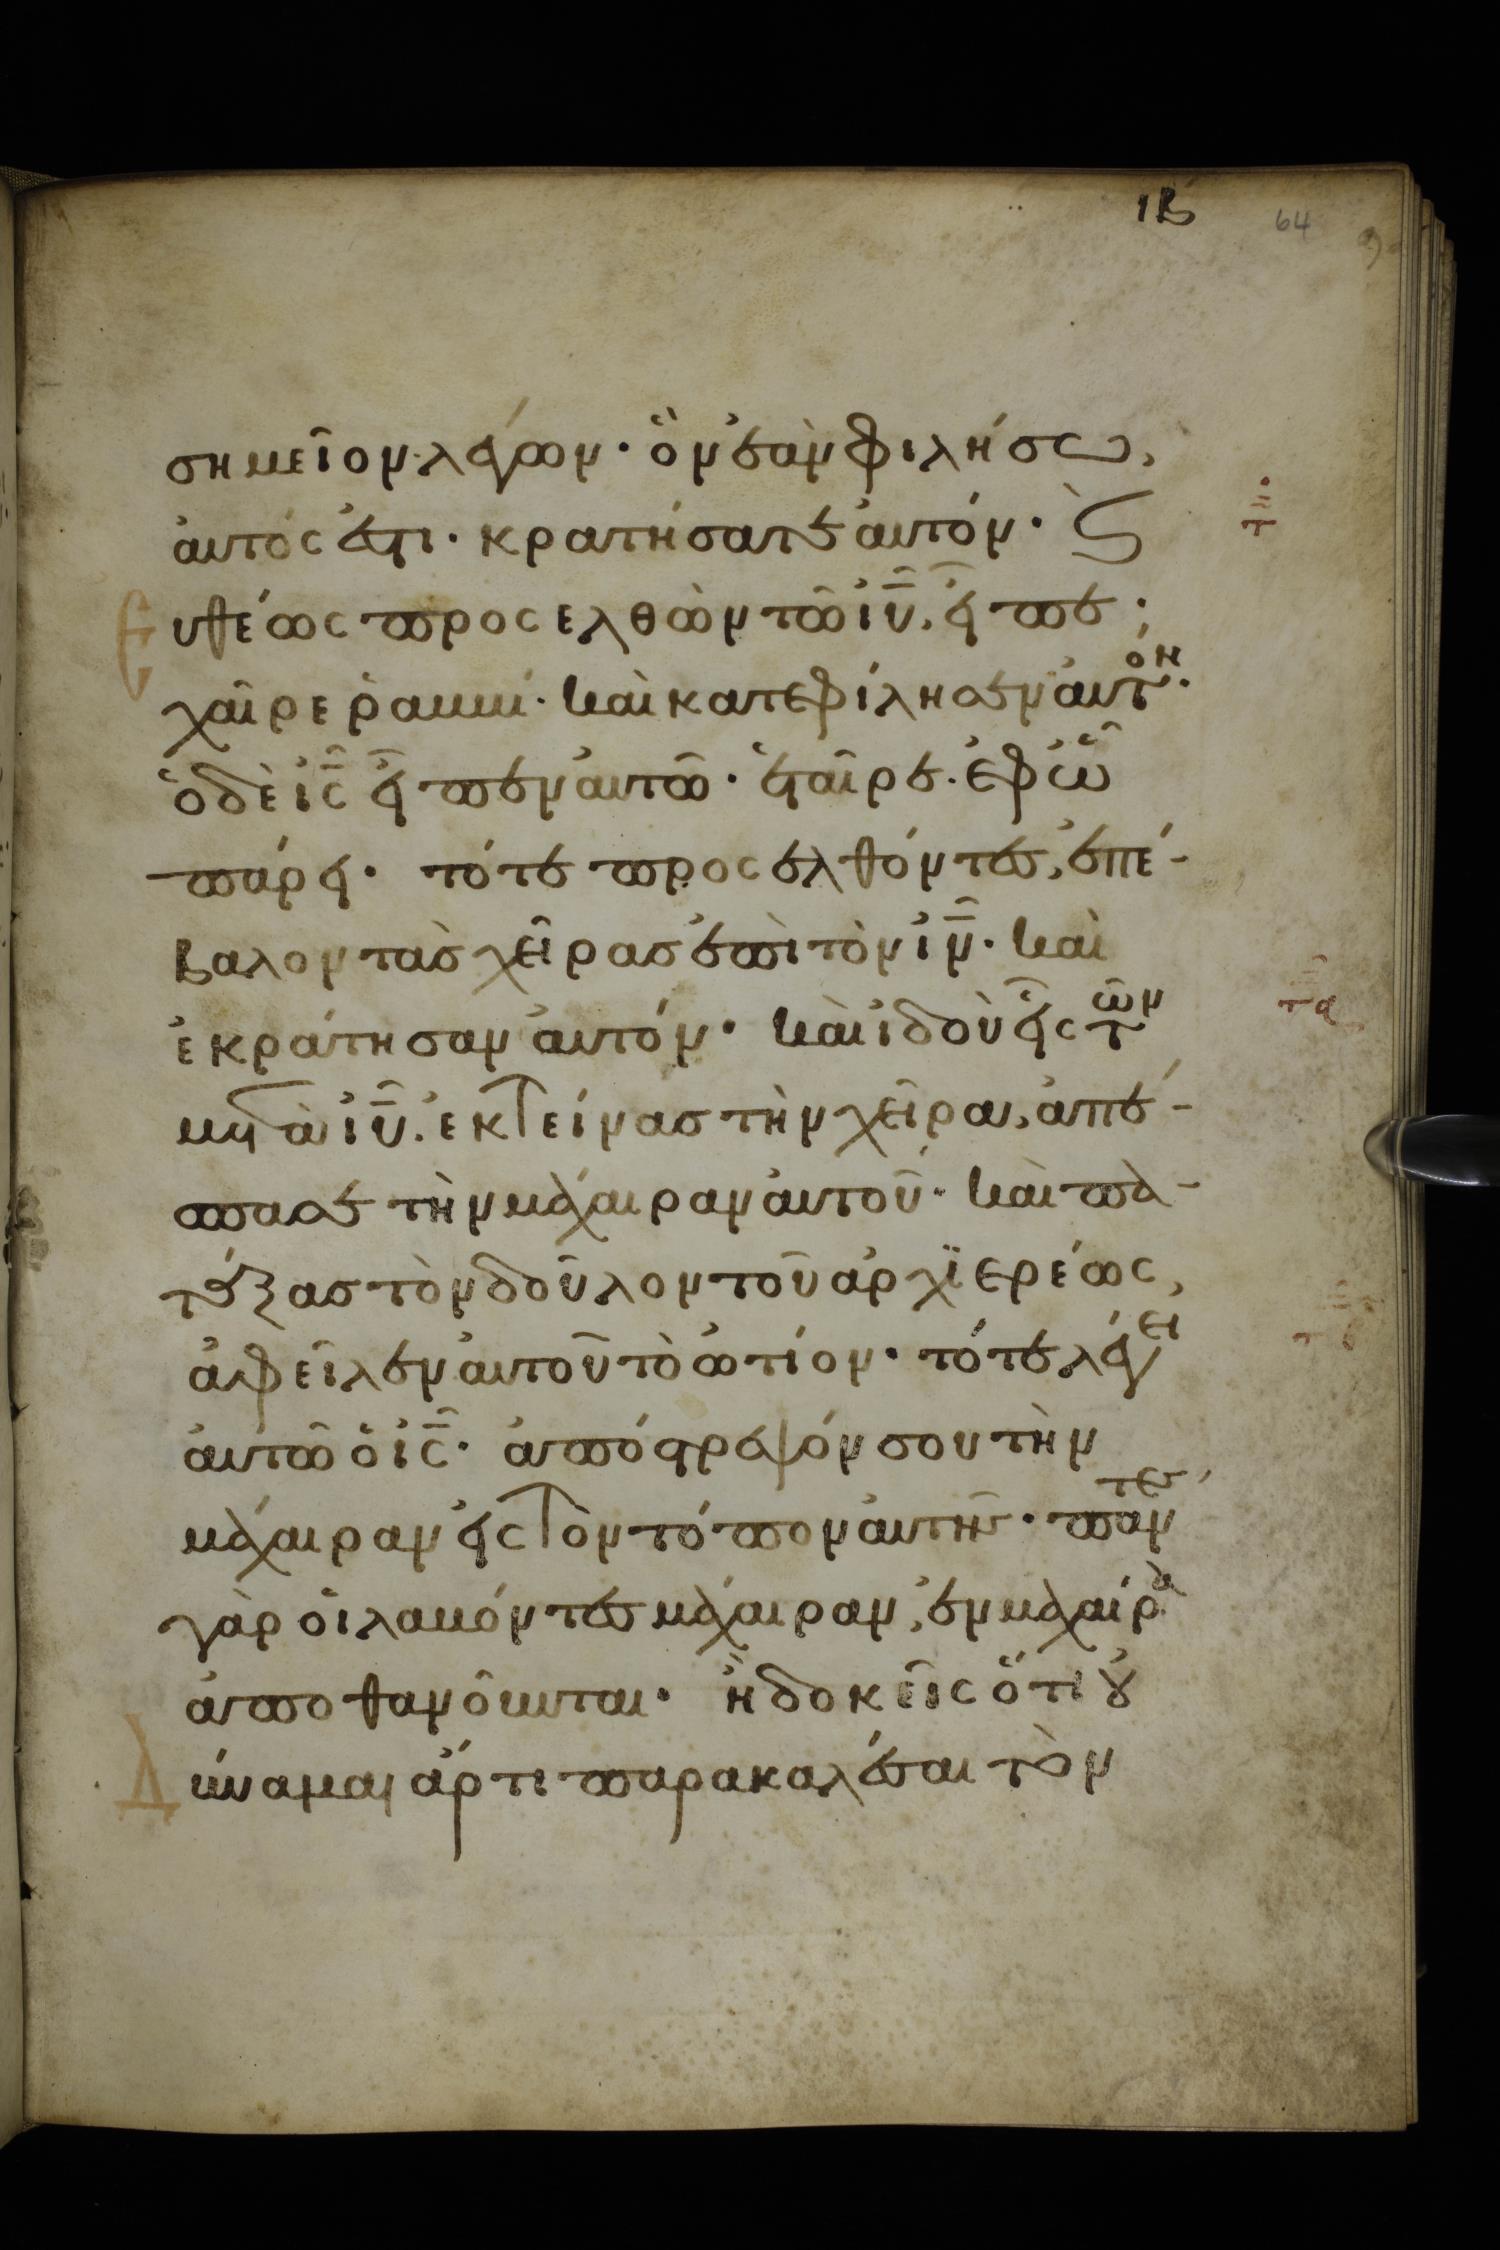 ιβ 64
σημεῖον λέγων· ὃν ἐὰν φιλήσω,
αὐτός ἐστι· κρατήσατε αὐτόν· Ϛ̀
Ευθέως προσελθὼν τῶ ἰῡ, εἶπε·
χαῖρε ῥαββί· καὶ κατεφίλησεν αὐτόν·
ὁ δὲ ἰς̄ εἶπεν αὐτῶ· ἑταῖρε· ἐφ ὧ
πάρει· τότε προσελθόντες, ἐπέ-
βαλον τὰς χεῖρας ἐπὶ τὸν ἰν̄· καὶ
ἐκράτησαν αὐτόν· καὶ ἰδοὺ εἷς τῶν
μετὰ ἰῡ. ἐκτείνας τὴν χεῖρα, ἀπέ-
σπασε τὴν μάχαιραν αὐτοῦ· καὶ πα-
τάξας τὸν δοῦλον τοῦ ἀρχϊερέως,
ἀφεῖλεν αὐτοῦ τὸ ὠτίον· τότε λέγει
αὐτῶ ὁ ἰς̄· ἀπόστρεψόν σου τὴν
μάχαιραν εἰς τὸν τόπον αὐτῆς· πάντες
γὰρ οἱ λαβόντες μάχαιραν, ἐν μαχαίρα
ἀποθανοῦνται· ἢ δοκεῖς ὅτι οὐ
Δύναμαι ἄρτι παρακαλέσαι τὸν
τ
τα